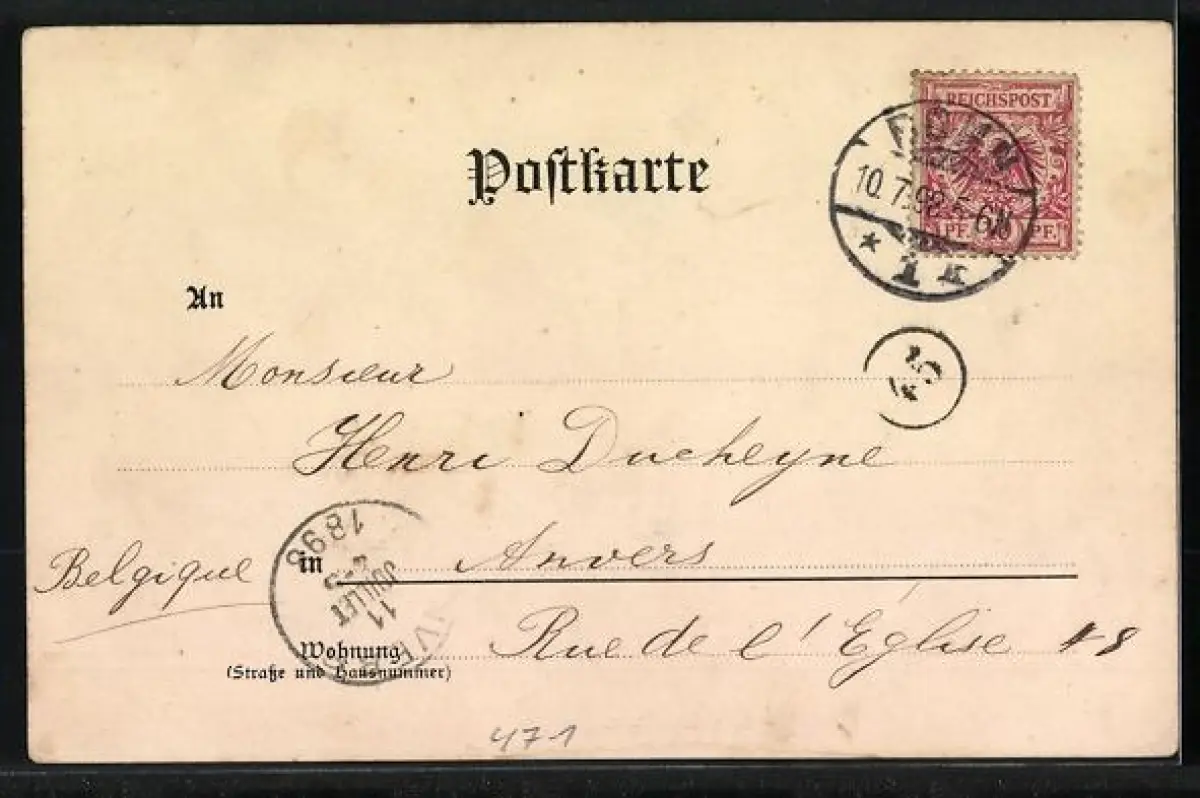 REICHSPOST
10 PF. 10 PF.
10.7.98.5-6N
* 1 k
Postkarte
An
Monsieur
45
Henri Ducheyne
1898
11
JUILLET
Belgique in Anvers
Wohnung Rue de l'Église 48
(Straße und Hausnummer)
471